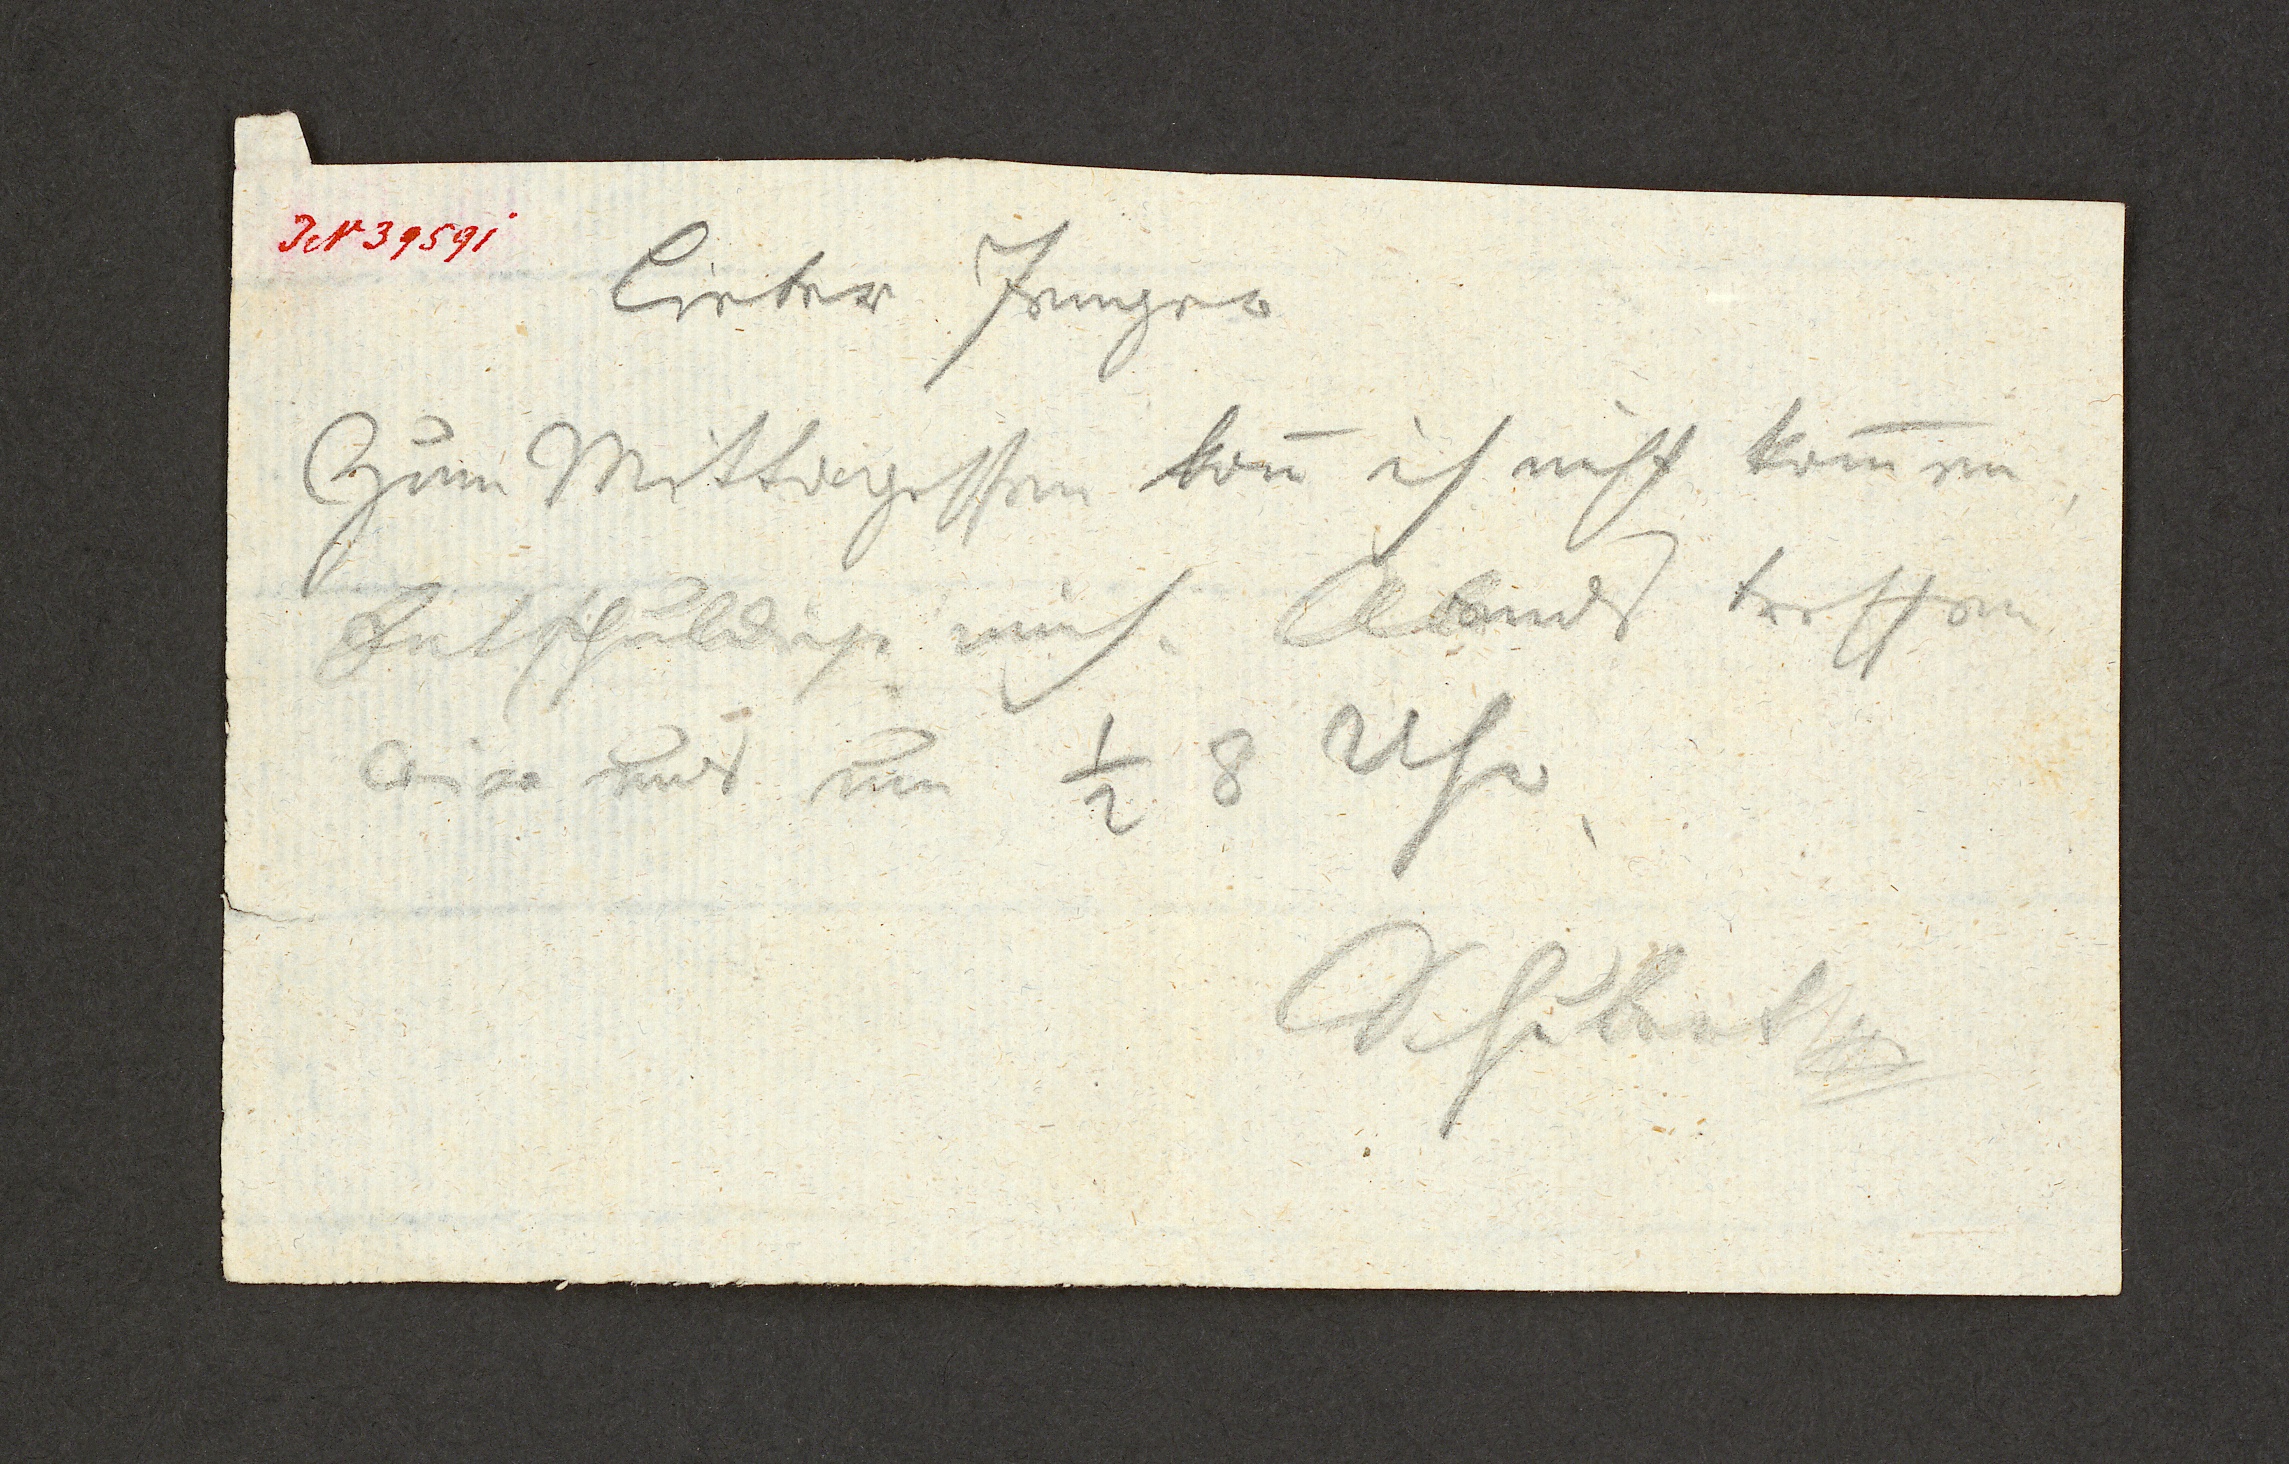 JN 39591
Lieber Jenger
Zum Mittagessen kon̄ ich nicht kom̄en,
Entschuldige mich. Abends treffen
wir uns um ½ 8 Uhr.
Schubert